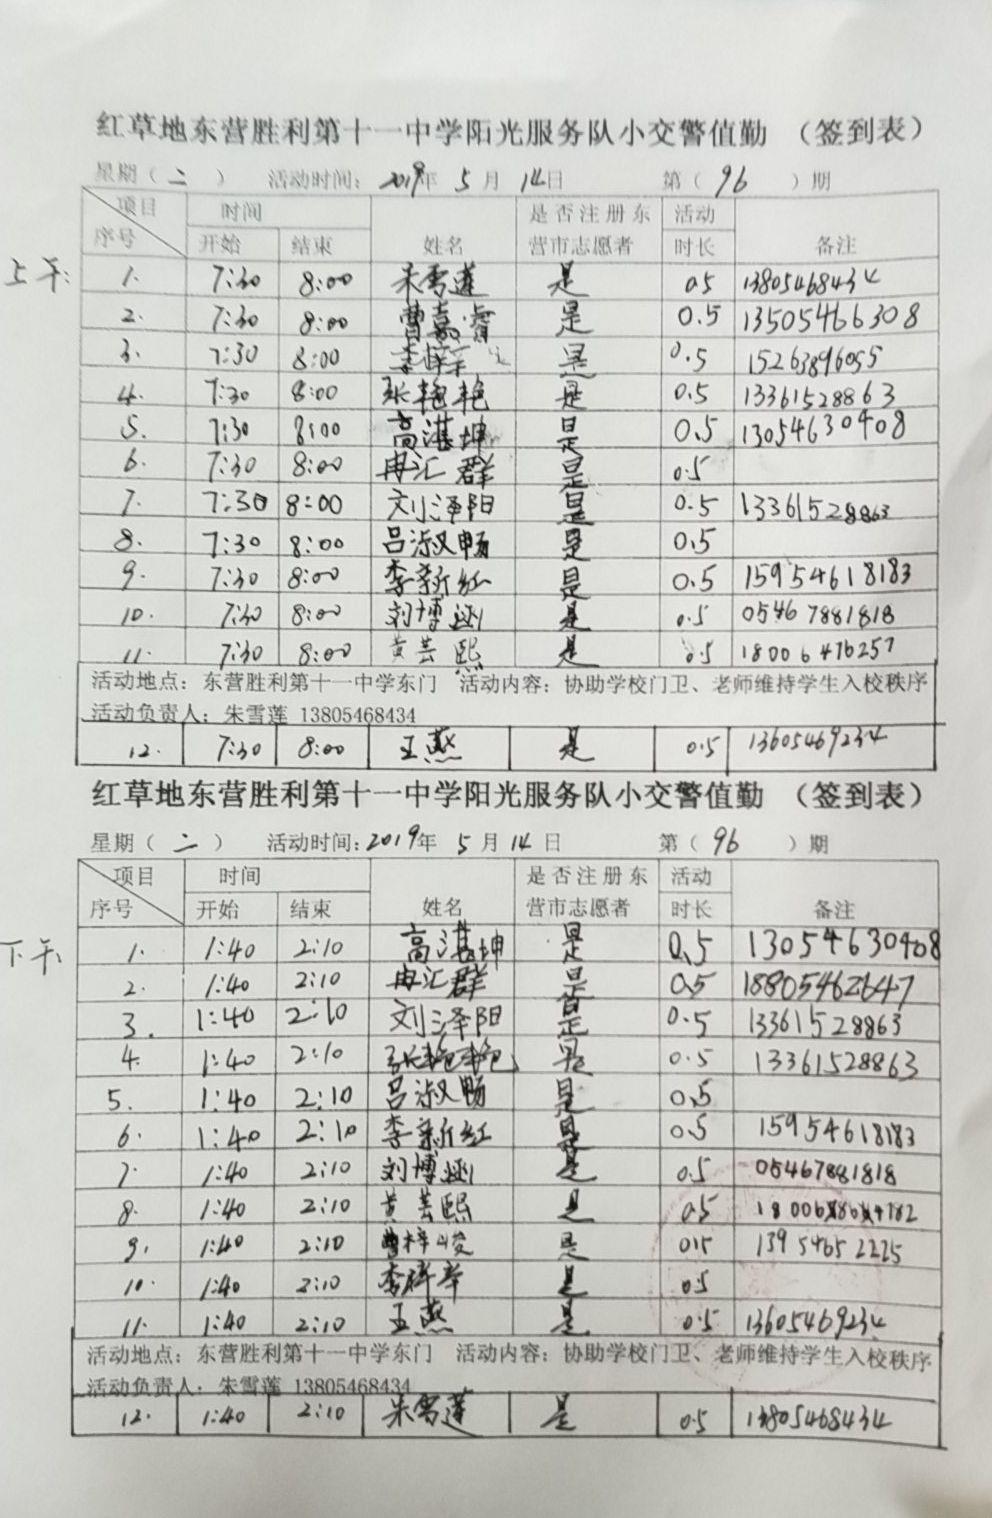 红草地东营胜利第十一中学阳光服务队小交警值勤 （签到表）
星期（二） 活动时间：2019年 5月 14日 第（96）期
项目 时间 是否注册东 活动
序号 开始 结束 姓名 营市志愿者 时长 备注
上午：
1. 7:30 8:00 朱雪莲 是 0.5 13805468434
2. 7:30 8:00 曹嘉睿 是 0.5 13505466308
3. 7:30 8:00 李 是 0.5 15263896055
4. 7:30 8:00 张艳艳 是 0.5 13361528863
5. 7:30 8:00 高湛坤 是 0.5 13054630408
6. 7:30 8:00 冉汇群 是 0.5
7. 7:30 8:00 刘泽阳 是 0.5 13361528863
8. 7:30 8:00 吕淑畅 是 0.5
9. 7:30 8:00 李新红 是 0.5 15954618183
10. 7:30 8:00 刘博 是 0.5 05467881818
11. 7:30 8:00 黄芸熙 是 0.5 18006476257
活动地点：东营胜利第十一中学东门 活动内容：协助学校门卫、老师维持学生入校秩序
活动负责人：朱雪莲 13805468434
12. 7:30 8:00 王燕 是 0.5 13605469234
红草地东营胜利第十一中学阳光服务队小交警值勤 （签到表）
星期（二） 活动时间：2019年 5月 14日 第（96）期
项目 时间 是否注册东 活动
序号 开始 结束 姓名 营市志愿者 时长 备注
下午：
1. 1:40 2:10 高湛坤 是 0.5 13054630408
2. 1:40 2:10 冉汇群 是 0.5 18805462647
3. 1:40 2:10 刘泽阳 是 0.5 13361528863
4. 1:40 2:10 张艳艳 是 0.5 13361528863
5. 1:40 2:10 吕淑畅 是 0.5
6. 1:40 2:10 李新红 是 0.5 15954618183
7. 1:40 2:10 刘博 是 0.5 05467881818
8. 1:40 2:10 黄芸熙 是 0.5
9. 1:40 2:10 曹梓峻 是 0.5 13954652225
10. 1:40 2:10 李 是 0.5
11. 1:40 2:10 王燕 是 0.5 13605469234
活动地点：东营胜利第十一中学东门 活动内容：协助学校门卫、老师维持学生入校秩序
活动负责人：朱雪莲 13805468434
12. 1:40 2:10 朱雪莲 是 0.5 13805468434